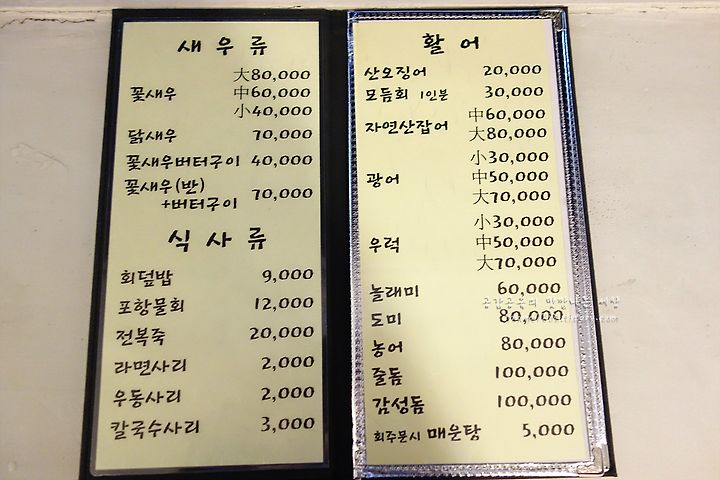 새우류
大80,000
꽃새우 中60,000
小40,000
닭새우 70,000
꽃새우버터구이 40,000
꽃새우(반)
+버터구이 70,000
식사류
회덮밥 9,000
포항물회 12,000
전복죽 20,000
라면사리 2,000
우동사리 2,000
칼국수사리 3,000
활어
산오징어 20,000
모듬회 1인분 30,000
자연산잡어 中60,000
大80,000
小30,000
광어 中50,000
大70,000
小30,000
우럭 中50,000
大70,000
놀래미 60,000
도미 80,000
농어 80,000
줄돔 100,000
감성돔 100,000
회주문시 매운탕 5,000